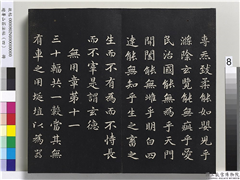 專炁致柔能如嬰兒乎
滌除玄覽能無疵乎愛
民治國能無為乎天門
開闔能無雌乎明白四
達能無知乎生之畜之
生而不有為而不恃長
而不宰是謂玄德
無用章第十一
三十輻共一轂當其無
有車之用埏埴以為器
8